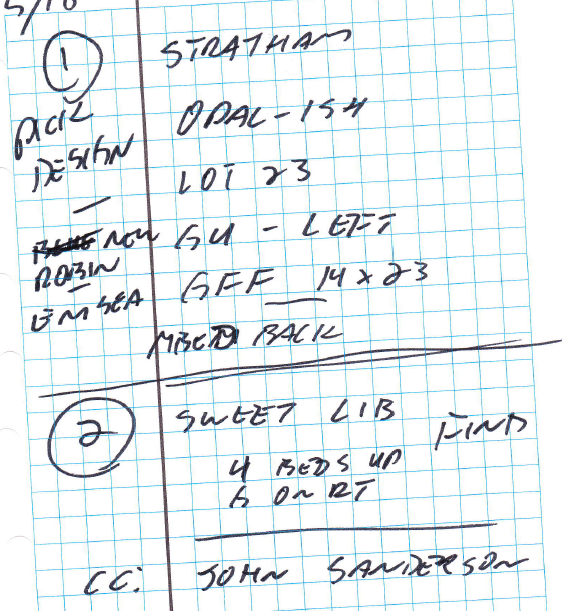 5/18
1 STRATHAM
PICK ODAL-154
DESIGN
LOT 23
NEW GU - LEFT
ROBIN GFF 14 x 23
EMSEA
MBED BACK
2 SWEET LIB FIND
4 BEDS UP
6 ON RT
CC: JOHN SANDERSON